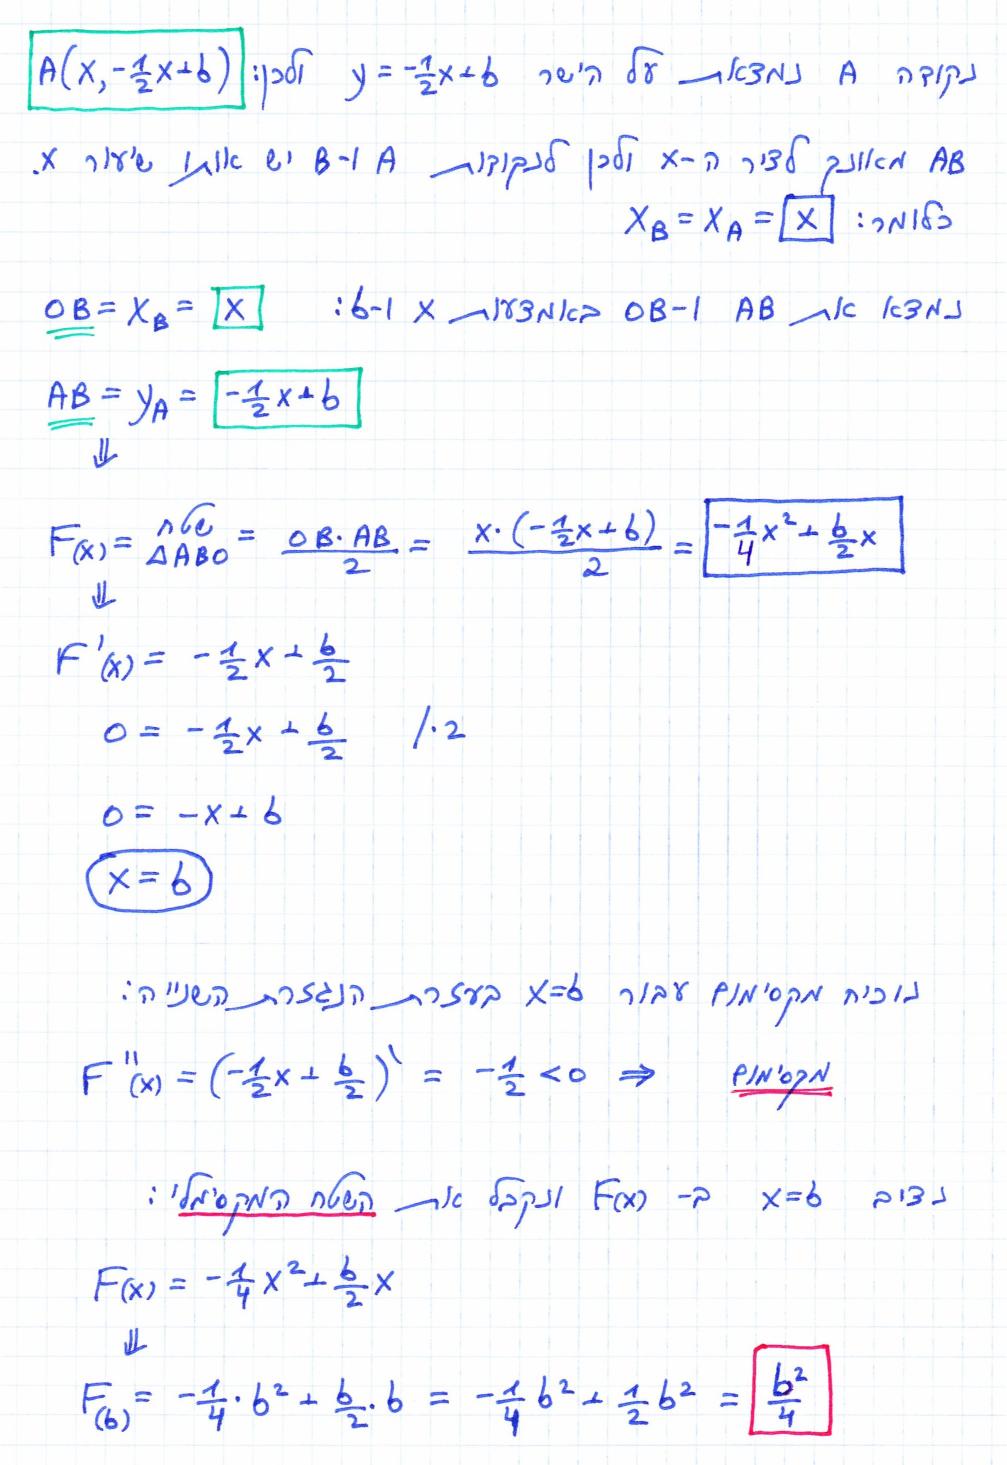 נקודה A נמצאת על הישר y = -½x+b ולכן: A(x, -½x+b)
AB מאונך לציר ה-x ולכן לנקודות A ו-B יש אותו שיעור x.
כלומר: x_B = x_A = x
נמצא את AB ו-OB באמצעות x ו-b:
OB = x_B = x
AB = y_A = -½x+b
⇓
F(x) = שטח ΔABO = OB·AB/2 = x·(-½x+b)/2 = -¼x²+b/2 x
⇓
F'(x) = -½x+b/2
0 = -½x+b/2 /·2
0 = -x+b
x=b
נוכיח מקסימום עבור x=b בעזרת הנגזרת השנייה:
F''(x) = (-½x+b/2)' = -½<0 ⇒ מקסימום
נציב x=b ב- F(x) ונקבל את השטח המקסימלי:
F(x) = -¼x²+b/2 x
⇓
F(b) = -¼·b²+b/2·b = -¼b²+½b² = b²/4